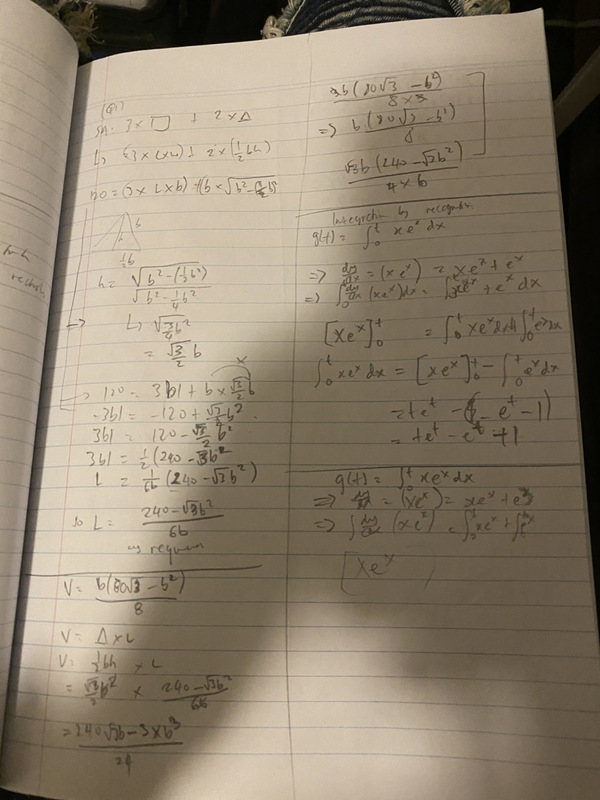 (Q1)
SA: 3 × ▭ + 2 × Δ
↳ (h × l × 3) + 2 × (½bh)
120 = (b × l × 3) + (b × √b² - ½b²)
b
½b
h = √b² - (½b²)
√b² - ¼b²
↳ √¾b²
= √3/2 b
120 = 3bl + b × √3/2 b
-3bl = -120 + √3/2 b²
3bl = 120 - √3/2 b²
3bl = ½(240 - √3b²
L = 1/6b (240 - √3b²)
so L = 240 - √3b² / 6b
as required
V = b(80√3 - b²) / 8
V = Δ × L
V = ½bh × L
= √3/2 b² × 240 - √3b² / 6b
= 240√3b - 3×b³ / 24
3b(80√3 - b²) / 8 × 3
=> b(80√3 - b²) / 8
√3b(240 - √3b²) / 4 × 6
Integration by recognition
g(t) = ∫₀ᵗ xeˣ dx
=> dy/dx = (xeˣ) = xeˣ + eˣ
=> ∫₀ᵗ dy/dx (xeˣ)dx = ∫₀ᵗ xeˣ + eˣ dx
[xeˣ]₀ᵗ = ∫₀ᵗ xeˣdx + ∫₀ᵗ eˣdx
∫₀ᵗ xeˣ dx = [xeˣ]₀ᵗ - ∫₀ᵗ eˣ dx
= teᵗ - ( eᵗ - 1)
= teᵗ - eᵗ + 1
g(t) = ∫₀ᵗ xeˣ dx
=> dy/dx = (xeˣ) = xeˣ + eˣ
=> ∫ dy/dx (xeˣ) = ∫₀ᵗ xeˣ + ∫₀ᵗ eˣ
[xeˣ